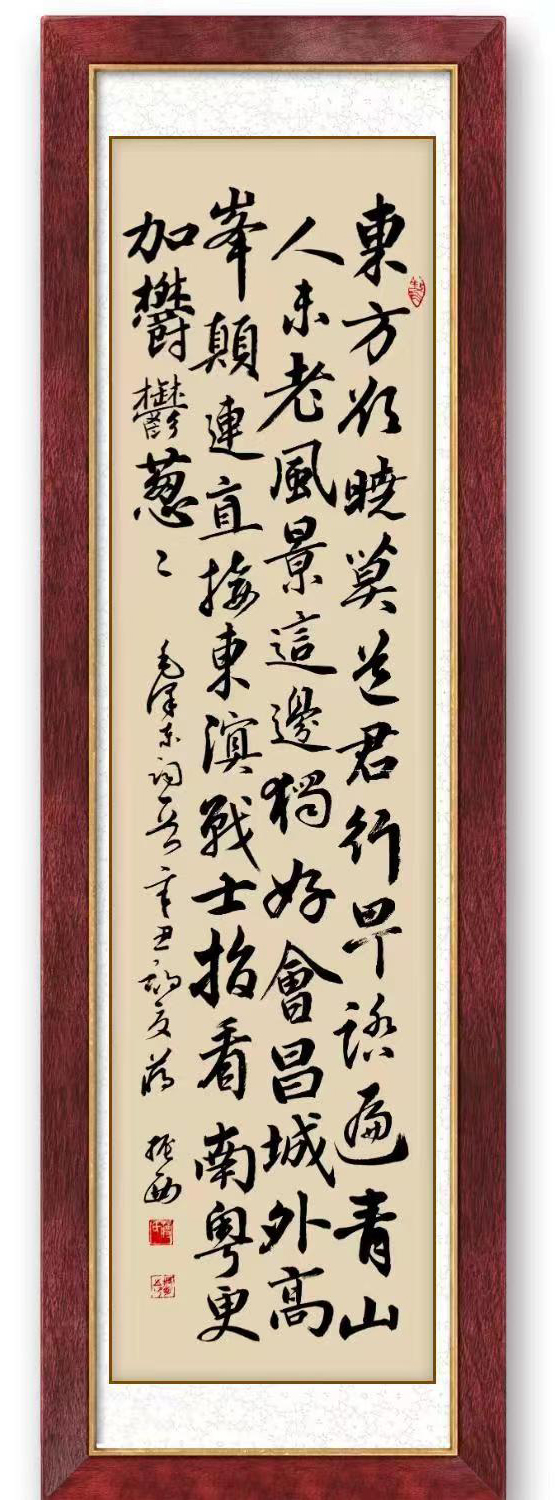 東方欲曉莫道君行早踏遍青山
人未老風景這邊獨好會昌城外高
峯顛連直接東溟戰士指看南粵更
加欝鬱葱〻
毛澤東詞一首 辛丑初夏